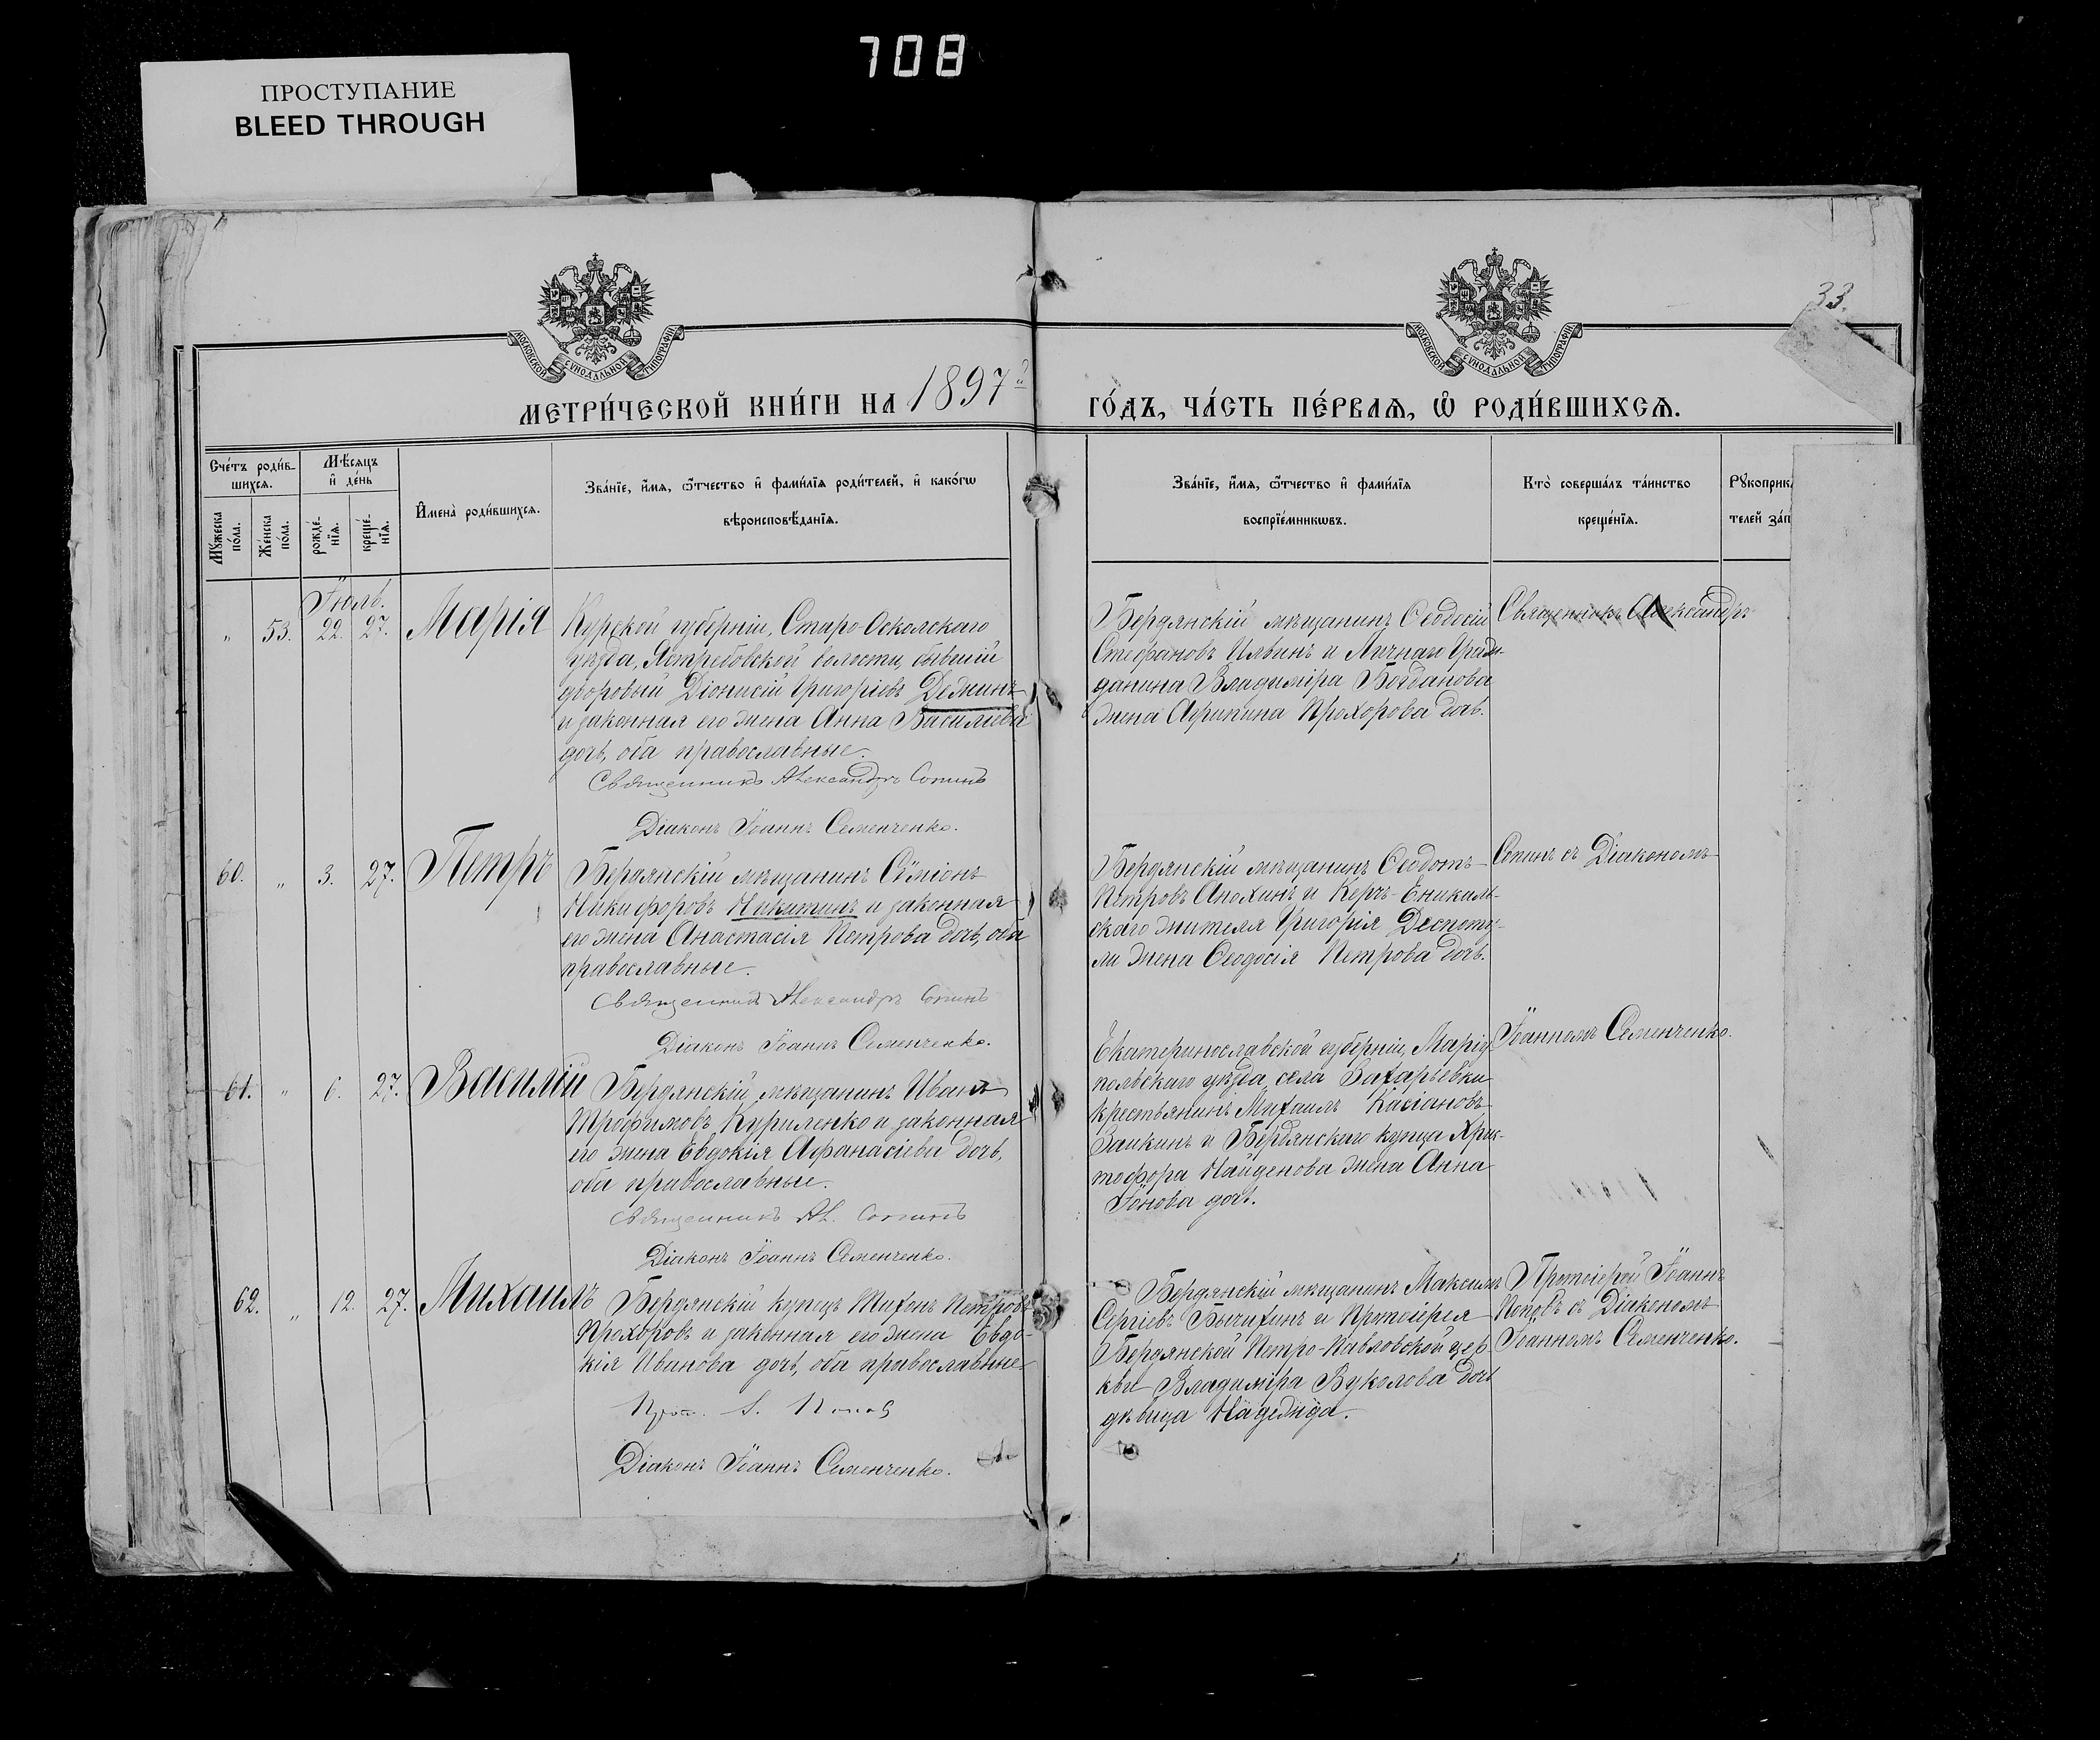 708
ПРОСТУПАНИЕ
BLEED THROUGH
33.
МОСКОВСКОЙ СУНОДАЛЬНОЙ ТИПОГРАФІИ
МОСКОВСКОЙ СУНОДАЛЬНОЙ ТИПОГРАФІИ
МЕТРИ́ЧЕСКОЙ КНИ́ГИ НА 1897й ГО́ДЪ, ЧА́СТЬ ПЕ́РВАѦ, Ѡ҆ РОДИ́ВШИХСѦ.
Сче́тъ роди́в-
шихсѧ.
Мѣ́сѧцъ
и҆ де́нь
И҆мена̀ роди́вшихсѧ.
Зва́нїе, и҆́мѧ, ѻ҆́тчество и҆ фами́лїѧ роди́телей, и҆ како́гѡ
вѣроисповѣ́данїѧ.
Мꙋ́жеска
по́ла.
Же́нска
по́ла.
рожде́-
нїѧ.
креще́-
нїѧ.
Зва́нїе, и҆́мѧ, ѻ҆́тчество и҆ фами́лїѧ
воспрїе́мникѡвъ.
Кто̀ соверша́лъ та́инство
креще́нїѧ.
Рꙋкоприк
телей за́п
Іюль.
" 53. 22. 27. Марія
Курской губерніи, Старо-Оскольскаго
уѣзда, Ястребовской волости, бывшій
дворовый Діонисій Григоріевъ
и законная его жена Анна Васильева
дочь, оба православные.
Священникъ Александръ Сопинъ
Діаконъ Іоаннъ Семенченко.
Бердянскій мѣщанинъ Ѳеодосій
Стефановъ Ильинъ и Личнаго Граж-
данина Владиміра Богданова
жена Агрипина Прохорова дочь.
Священникъ Александръ
60. " 3. 27. Петръ
Бердянскій мѣщанинъ Сѵміонъ
Никифоровъ Никитинъ и законная
его жена Анастасія Петрова дочь, оба
православные.
Священникъ Александръ Сопинъ
Діаконъ Іоаннъ Семенченко.
Бердянскій мѣщанинъ Ѳеодотъ
Петровъ Анохинъ и Керчь-Еникаль-
скаго жителя Григорія Деспоту-
ли жена Ѳеодосія Петрова дочь.
Сопинъ съ Діакономъ
61. " 6. 27. Василій
Бердянскій мѣщанинъ Иванъ
Трофимовъ Куриленко и законная
его жена Евдокія Афанасіева дочь,
оба православные.
Священникъ Ал. Сопинъ
Діаконъ Іоаннъ Семенченко.
Екатеринославской губерніи, Маріу-
польскаго уѣзда, села Захарьевки
крестьянинъ Михаилъ Касіановъ
Заикинъ и Бердянскаго купца Хрис-
тофора Найденова жена Анна
Іонова дочь.
Іоанномъ Семенченко.
62. " 12. 27. Михаилъ
Бердянскій купецъ Тихонъ Петровъ
Прохоровъ и законная его жена Евдо-
кія Иванова дочь, оба православные
Прот. І. Поповъ
Діаконъ Іоаннъ Семенченко.
Бердянскій мѣщанинъ Максимъ
Сергіевъ Бычихинъ и Протоіерея
Бердянской Петро-Павловской цер-
кви Владиміра Вуколова дочь
дѣвица Надежда.
Протоіерей Іоаннъ
Поповъ съ Діакономъ
Іоанномъ Семенченко.